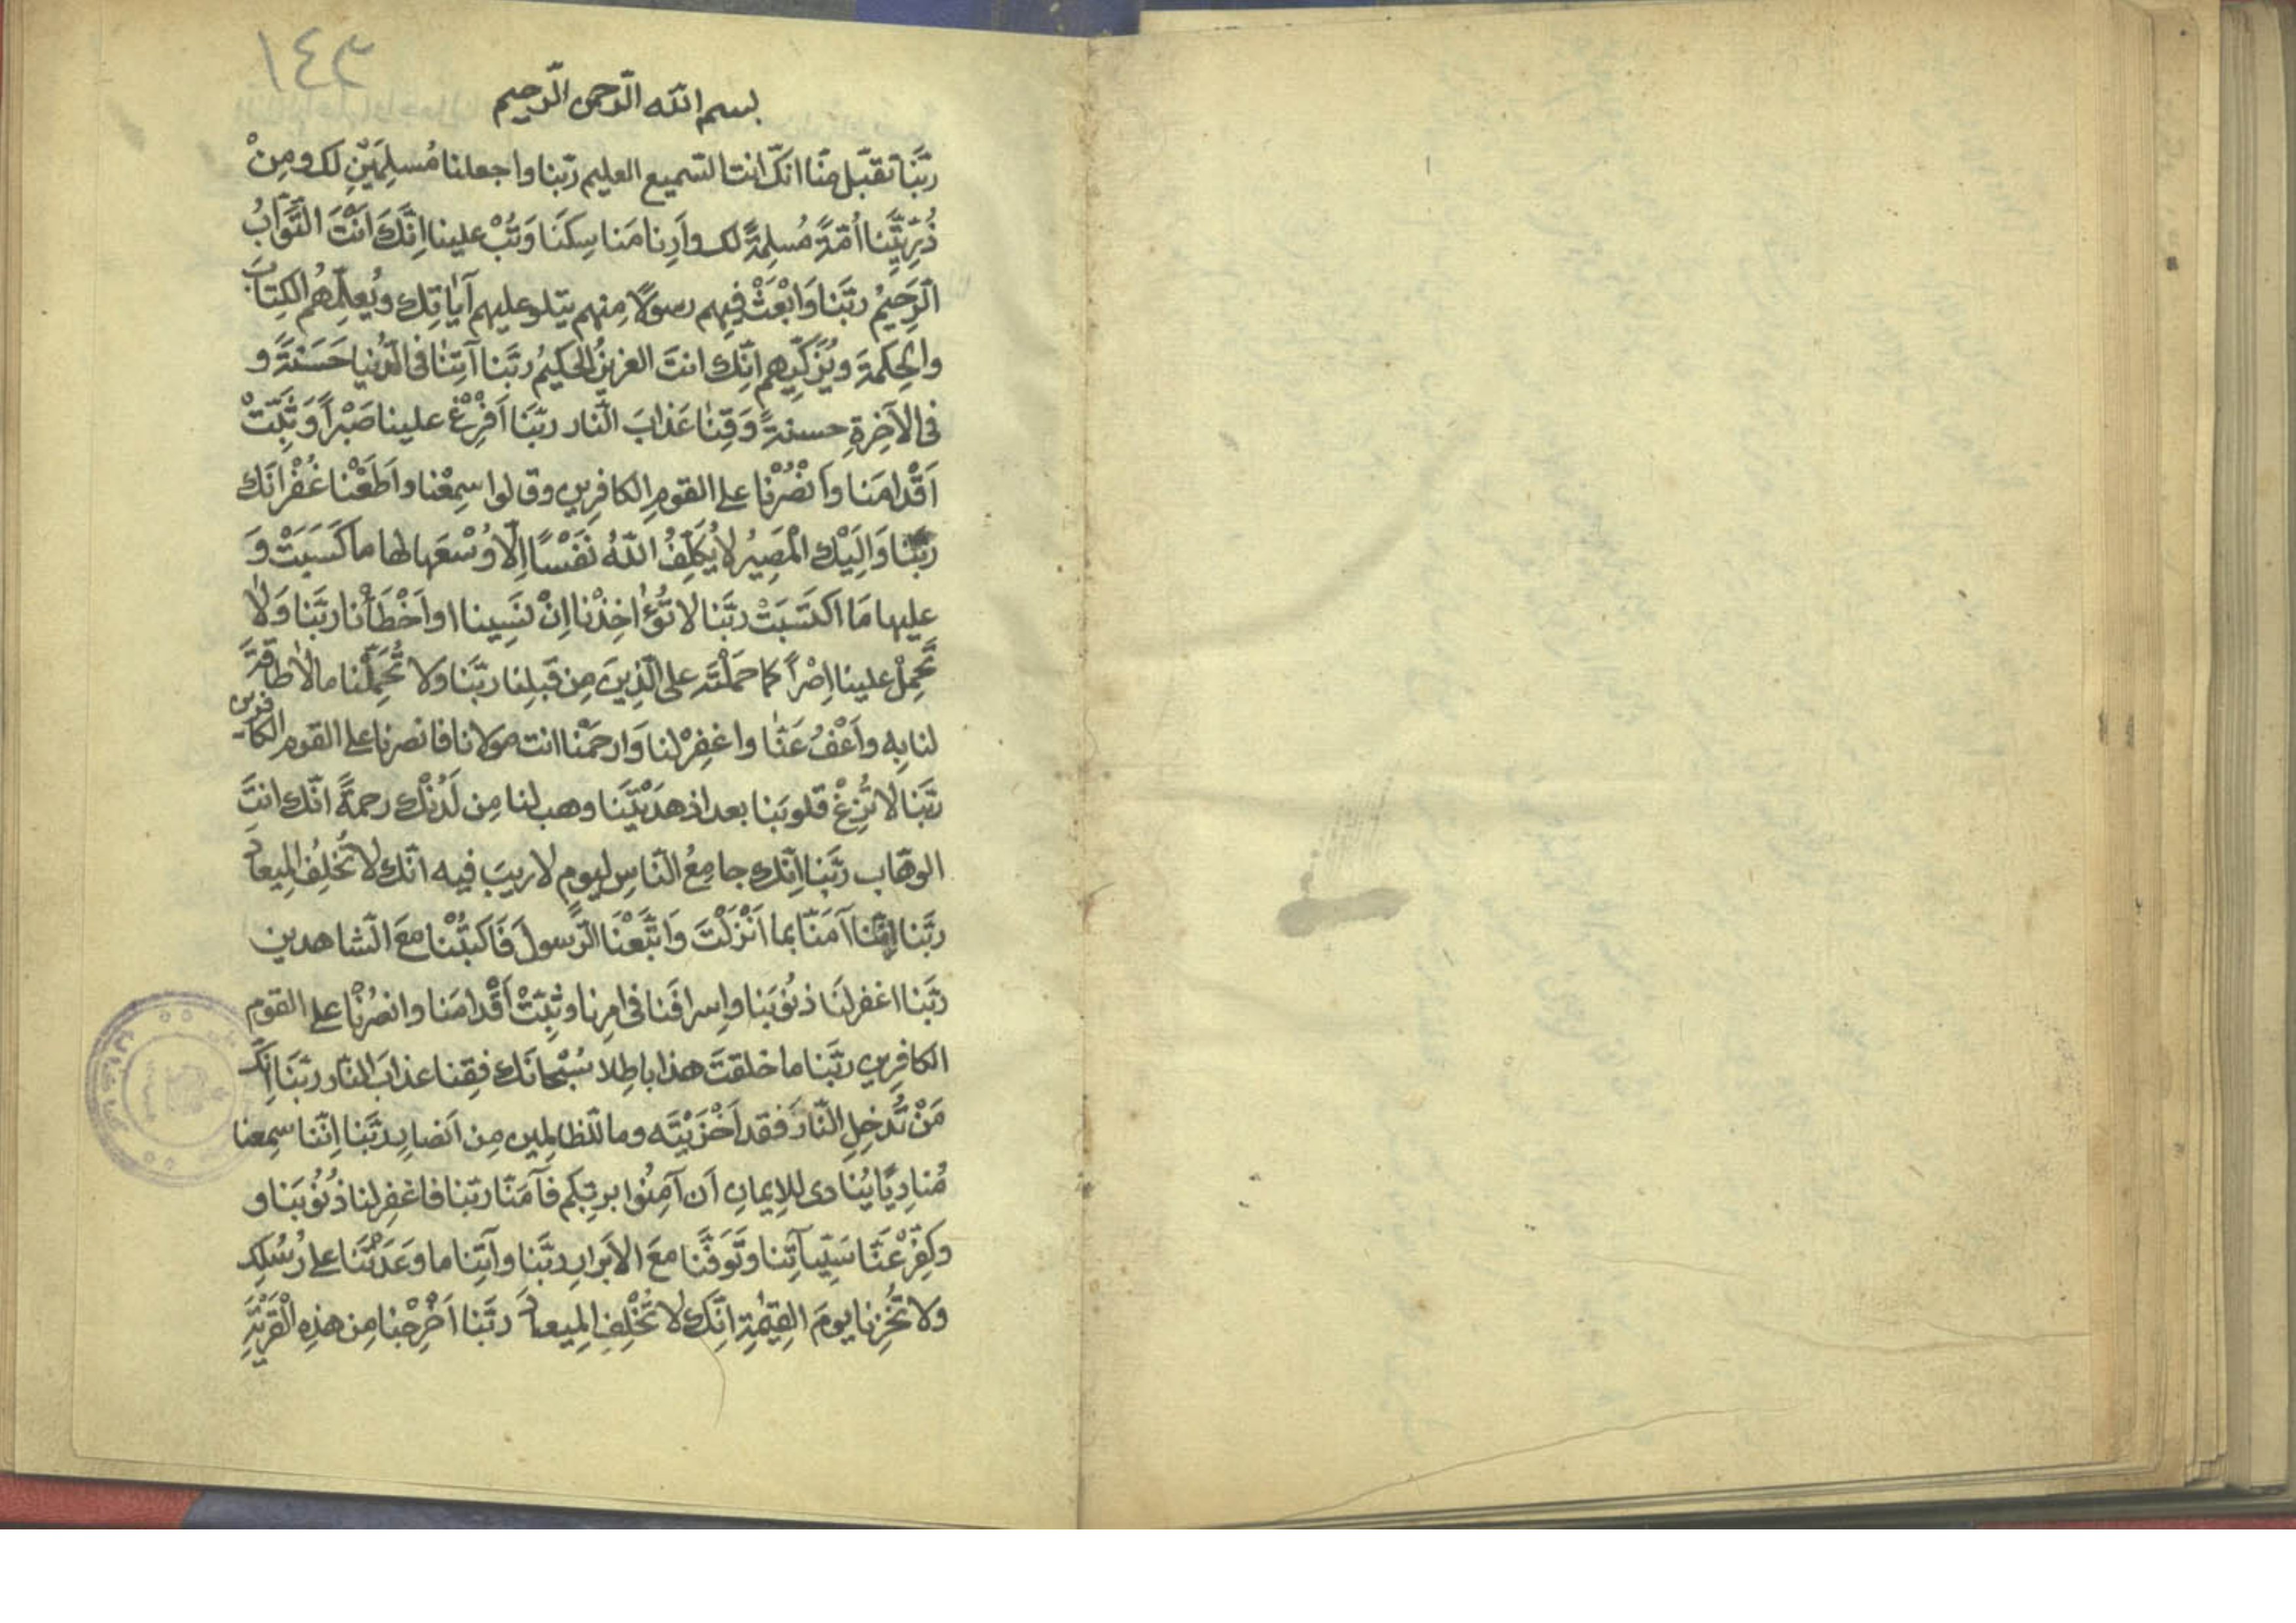 ١٤٣
بسم الله الرّحمن الرّحيم
ربَّنا تقبّل منّا انّك انت السّميع العليم ربّنا واجعلنا مُسلِمَيْنِ لك ومِنْ
ذُرّيَّتِنا اُمّةً مُسلِمةً لك واَرِنا مَناسِكَنَا وَتُبْ علينا اِنَّكَ اَنْتَ التَّوّابُ
الرَّحيمُ ربَّنا وَابْعَثْ فيهِم رسولًا مِنهم يتلو عليهم آياتِك ويُعلّمُهُم الكِتابَ
والحِكمةَ ويُزَكّيهِم اِنّك انتَ العزيزُ الحكيمُ ربَّنا آتِنا فى الدُنيا حَسَنَةً و
فى الآخِرةِ حسنةً وَقِنا عَذابَ النّار ربَّنَا اَفْرِغْ علينا صَبْراً وَثَبِّتْ
اَقْدامَنا وانْصُرْنا على القومِ الكافِرين وقالوا سمِعْنا واَطَعْنا غُفْرانَك
ربَّنا وَاِلَيْك المَصيرُ لا يُكَلِّفُ اللّهُ نَفْسًا اِلّا وُسْعَها لها ما كَسَبَتْ وَ
عليها مَا اكتَسَبَتْ ربَّنا لا تُؤاخِذْنا اِنْ نَسِينا او اَخْطَأْنا ربَّنا وَلا
تَحمِلْ علينا اِصْراً كما حَمَلْتَه على الّذينَ مِن قَبلِنا ربَّنا وَلا تُحَمِّلْنا ما لا طاقةَ
لنا بِه واَعْفُ عَنّا واغفِرْ لنا وَارحَمْنا انت مولانا فانصرنا على القوم الكافرين
ربَّنا لا تُزِغْ قلوبَنا بعد اذ هدَيْتَنا وهب لنا مِن لَدُنْك رحمةً انّك انتَ
الوهّاب ربَّنا اِنّك جامِعُ النّاسِ ليومٍ لا ريبَ فيه انّك لا تُخلِفُ الميعادَ
ربَّنا اِنّنا آمَنّا بما اَنْزَلْتَ وَاتَّبَعْنَا الرّسولَ فَاكتُبْنا معَ الشّاهدين
ربَّنا اغفر لنَا ذنُوبَنا واِسرافَنا فى امرِنا وثبِّتْ اَقْدامَنا وانصُرْنا على القوم
الكافِرين ربَّنا ما خلقتَ هذا باطِلا سُبْحانَك فقِنا عذابَ النّار ربَّنَا اِنَّك
مَنْ تُدخِلِ النّارَ فقد اَخْزَيْتَه وما للظالِمين مِن اَنصارٍ ربَّنا اِنّنا سمِعنا
مُنادِيًا يُنادى للاِيمانِ اَن آمِنُوا بربِّكم فآمَنّا ربّنا فاغفِر لنا ذُنُوبَنا و
وكَفِّرْ عَنّا سَيّآتِنا وتَوَفَّنا معَ الاَبرارِ ربَّنا وآتِنا ما وَعَدْتَنا على رُسُلِك
وَلا تُخزِنا يومَ القِيٰمةِ اِنَّك لا تُخْلِفُ الميعادَ ربَّنا اَخْرِجْنا مِن هذِه القَرْيَةِ